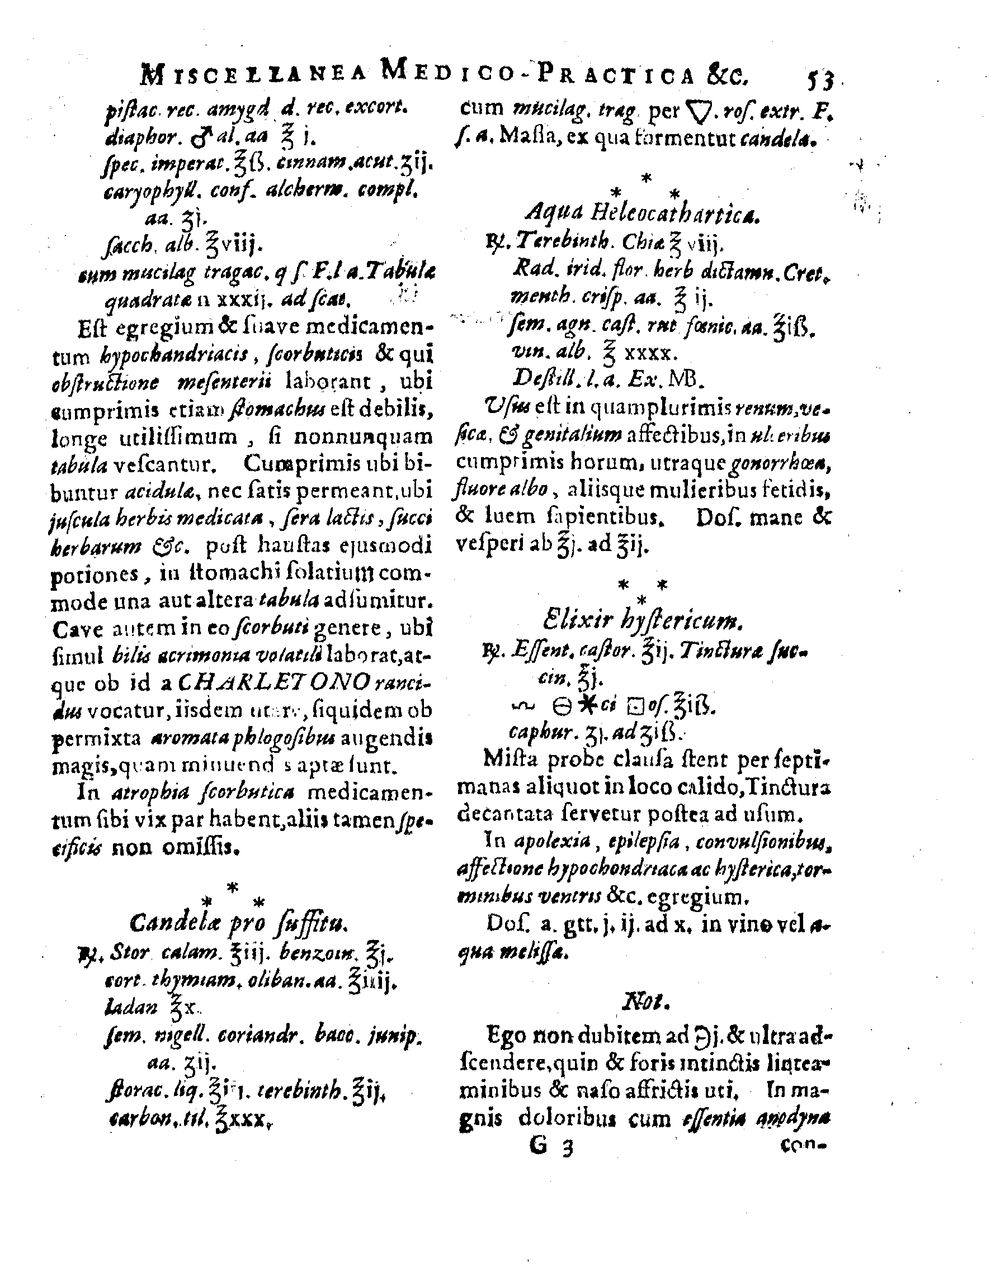 MISCELLANEA MEDICO-PRACTICA &c. 53
piſtac. rec. amygd d. rec. excort.
diaphor. ♂ al. aa ℥ j.
ſpec. imperat. ℥ß. cinnam. acut. ʒij.
caryophyll. conf. alcherm. compl.
aa. ʒj.
ſacch. alb. ℥viij.
cum mucilag tragac. q ſ. F. l a. Tabulæ
quadratæ n xxxij. ad ſcat.
Eſt egregium & ſuave medicamen-
tum hypochandriacis, ſcorbuticis & qui
obſtructione meſenterii laborant, ubi
cumprimis etiam ſtomachus eſt debilis,
longe utiliſſimum, ſi nonnunquam
tabula veſcantur. Cumprimis ubi bi-
buntur acidulæ, nec ſatis permeant, ubi
juſcula herbis medicata, ſera lactis, ſucci
herbarum &c. poſt hauſtas ejusmodi
potiones, in ſtomachi ſolatium com-
mode una aut altera tabula adſumitur.
Cave autem in eo ſcorbuti genere, ubi
ſimul bilis acrimonia volatili laborat, at-
que ob id a CHARLETONO ranci-
dus vocatur, iisdem utaris, ſiquidem ob
permixta aromata phlogoſibus augendis
magis, quam minuendis aptæ ſunt.
In atrophia ſcorbutica medicamen-
tum ſibi vix par habent, aliis tamen ſpe-
cificis non omiſſis.
* * *
Candelæ pro ſuffitu.
℞. Stor calam. ℥iij. benzoin. ℥j.
cort. thymiam. oliban. aa. ℥iiij.
ladan ℥x.
ſem. nigell. coriandr. bacc. junip.
aa. ʒij.
ſtorac. liq. terebinth. ℥ij.
carbon. til. ℥xxx.
cum mucilag. trag. per 🜄. roſ. extr. F.
ſ. a. Maſſa, ex qua formentut candelæ.
* * *
Aqua Heleocathartica.
℞. Terebinth. Chiæ ℥ viij.
Rad. irid. flor. herb dictamn. Cret.
menth. criſp. aa. ℥ ij.
ſem. agn. caſt. rut fœnic. aa. ℥iß.
vin. alb. ℥ xxxx.
Deſtill. l. a. Ex. MB.
Uſus eſt in quamplurimis renum, ve-
ſicæ, & genitalium affectibus, in ulceribus
cumprimis horum, utraque gonorrhœa,
fluore albo, aliisque mulieribus fetidis,
& luem ſapientibus. Doſ. mane &
veſperi ab ℥j. ad ℥ij.
* * *
Elixir hyſtericum.
℞. Eſſent. caſtor. ℥ij. Tincturæ ſuc-
cin. ℥j.
🜖 ⊖ ✱ci ⊡oſ. ℥iß.
caphur. ʒj. ad ʒiß.
Miſta probe clauſa ſtent per ſepti-
manas aliquot in loco calido, Tinctura
decantata ſervetur poſtea ad uſum.
In apolexia, epilepſia, convulſionibus,
affectione hypochondriaca ac hyſterica, tor-
minibus ventris &c. egregium.
Doſ. a. gtt. j. ij. ad x. in vino vel a-
qua meliſſæ.
Not.
Ego non dubitem ad ℈j. & ultra ad-
ſcendere, quin & foris intinctis lintea-
minibus & naſo affrictis uti. In ma-
gnis doloribus cum eſſentia anodyna
G 3 con-